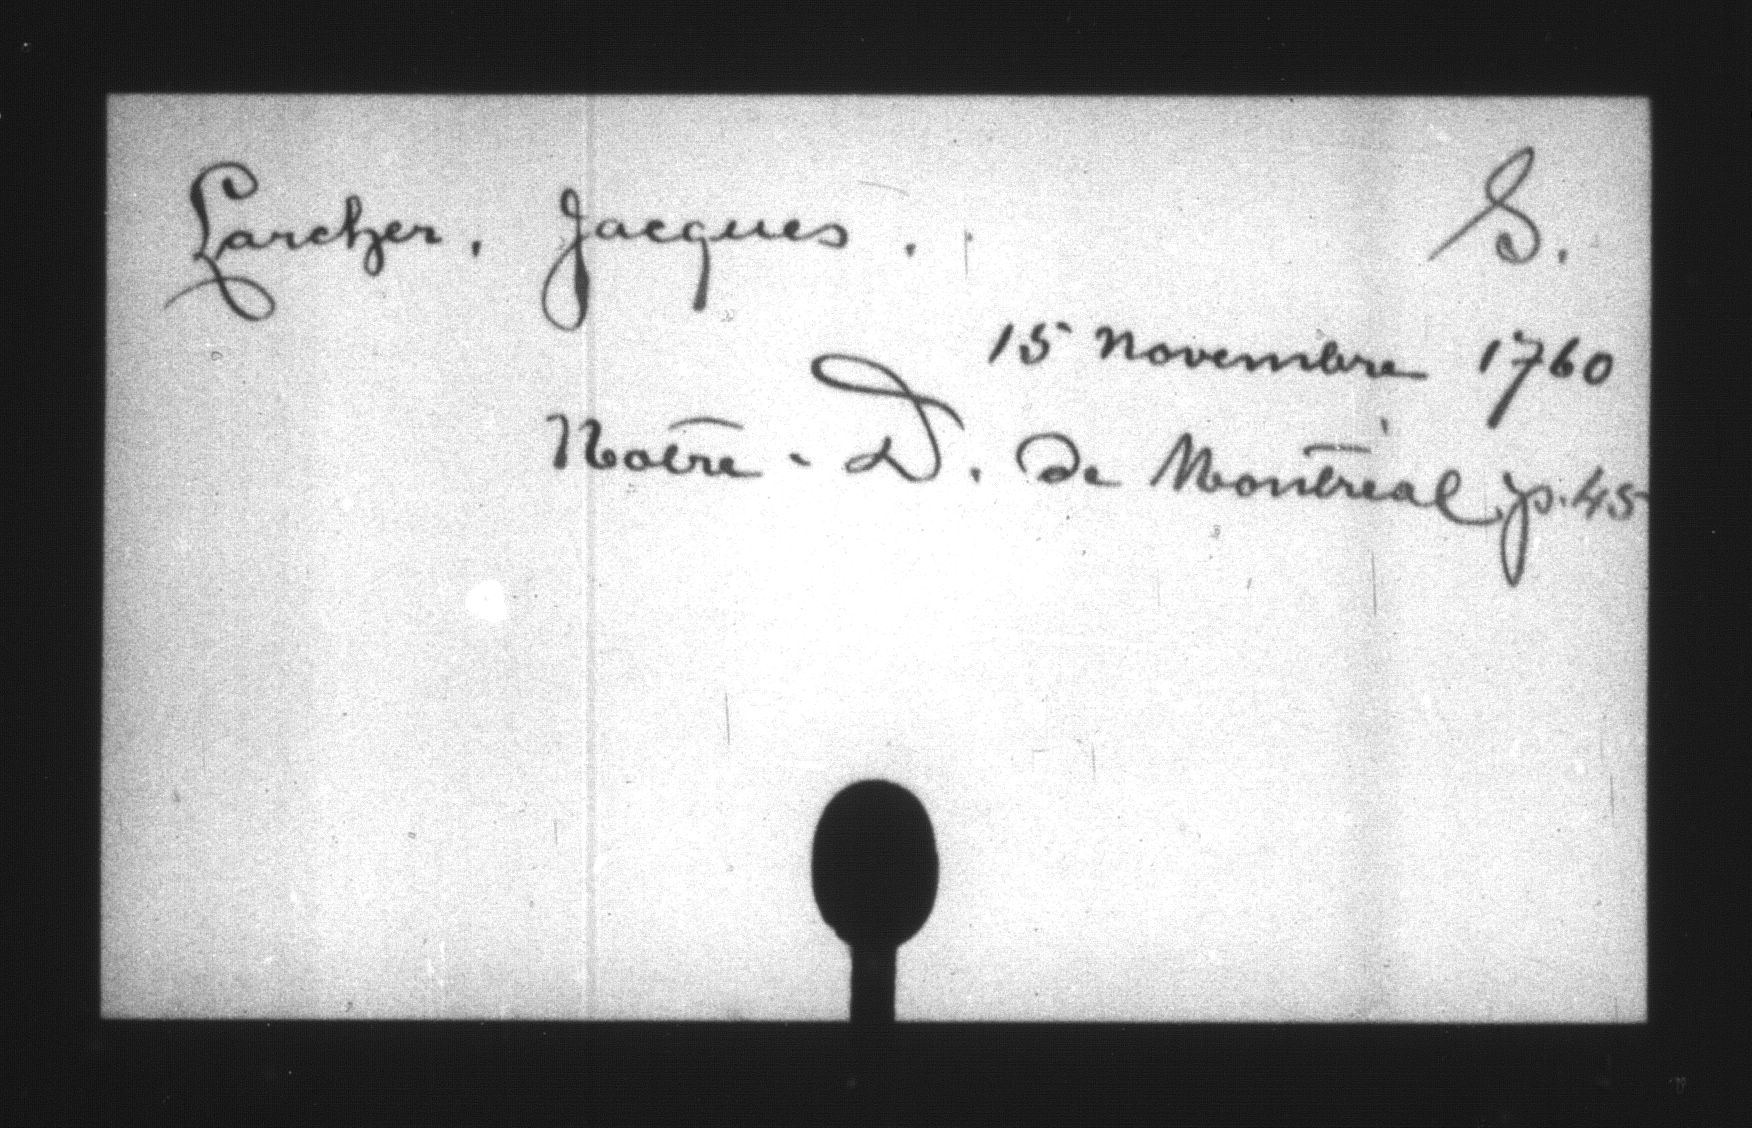 Larcher, Jacques. S.
15 novembre 1760
Notre-D. de Montréal p.45